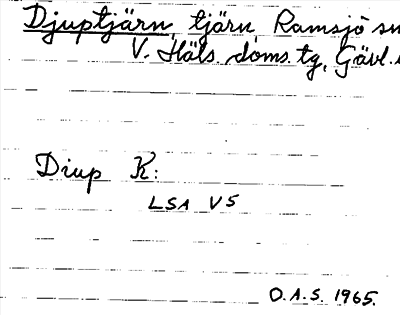 Djuptjärn, tjärn, Ramsjö sn
V. Häls. doms. tg, Gävl.
Diup K:
LSA V5
O.A.S. 1965.